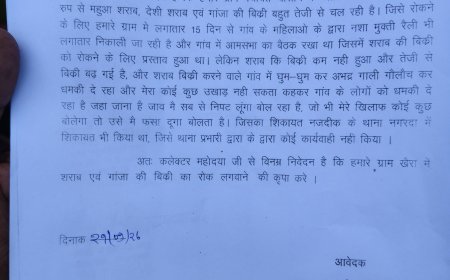 रुप से महुआ शराब, देशी शराब एवं गांजा की बिक्री बहुत तेजी से चल रही है। जिसे रोकने
के लिए हमारे ग्राम मे लगातार 15 दिन से गांव के महिलाओ के द्वारा नशा मुक्ती रैली भी
लगातार निकाली जा रही है और गांव में आमसभा का बैठक रखा था जिसमें शराब की बिक्री
को रोकने के लिए प्रस्ताव हुआ था। लेकिन शराब कि बिक्री कम नही हुआ और तेजी से
बिक्री बढ़ गई है, और शराब बिक्री करने वाले गांव में घुम–घुम कर अभद्र गाली गौलौच कर
धमकी दे रहा और मेरा कोई कुछ उखाड़ नही सकता कहकर गांव के लोगों को धमकी दे
रहा है जहा जाना है जाव मै सब से निपट लूंगा बोल रहा है, जो भी मेरे खिलाफ कोई कुछ
बोलेगा तो उसे मै फसा दूगा बोलता है। जिसका शिकायत नजदीक के थाना नगरदा में
शिकायत भी किया था, जिसे थाना प्रभारी द्वारा के द्वारा कोई कार्यवाही नही किया ।
अतः कलेक्टर महोदया जी से विनम्र निवेदन है कि हमारे ग्राम खैरा में
शराब एवं गांजा की बिक्री का रोक लगवाने की कृपा करे ।
दिनाक
आवेदक